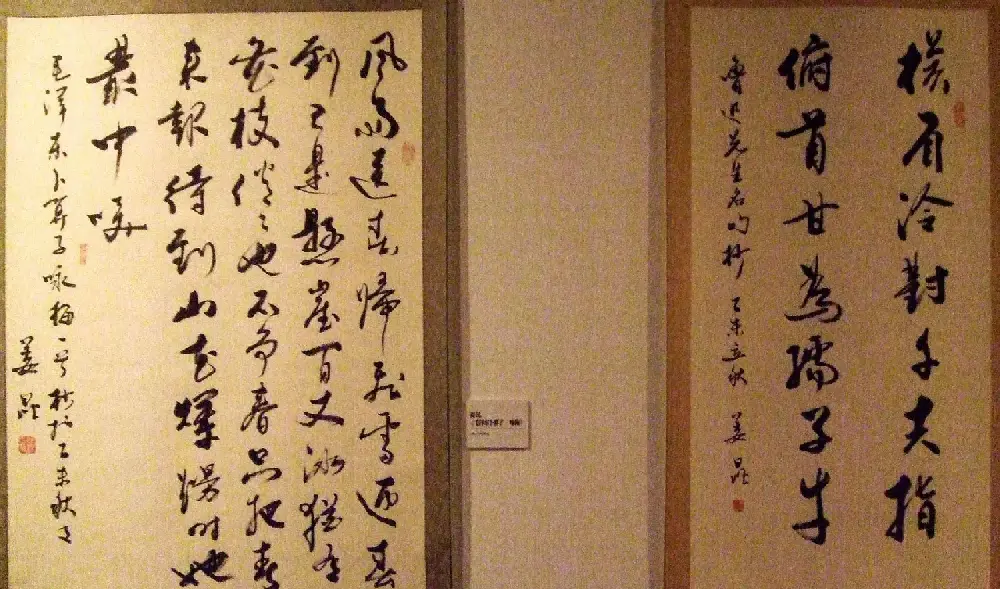 橫眉冷對千夫指
俯首甘為孺子牛
魯迅先生名句抄 乙未立秋 姜昆
風雨送春歸飛雪迎春
到已是懸崖百丈冰猶有
花枝俏俏也不爭春只把春
來報待到山花爛熳時她
叢中咲
毛澤東卜算子咏梅一首抄於乙未秋月
姜昆